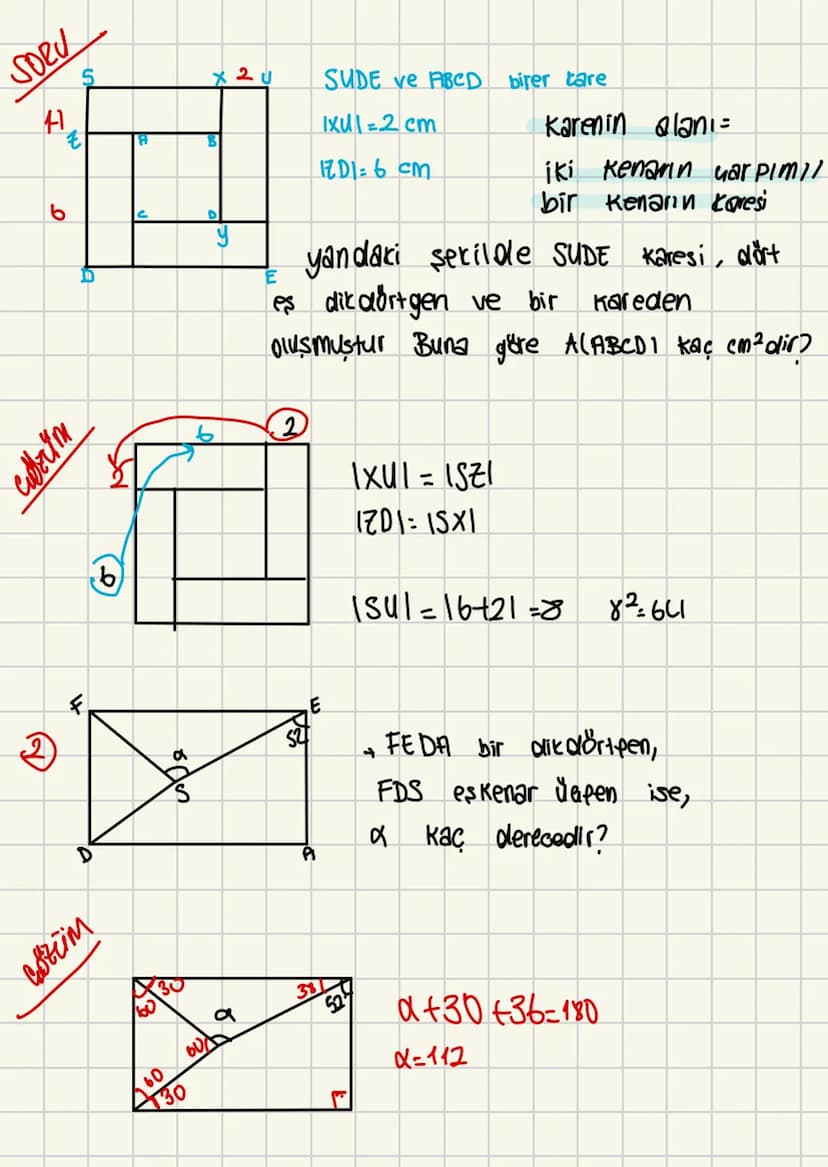 SORU
S X 2 U
SUDE ve ABCD birer kare
|XU|=2 cm
|ZD|=6 cm
Karenin alanı=
iki kenarın çarpımı//
bir kenarın karesi
Z
A B
6
C D
y
D E
yandaki şekilde SUDE karesi, dört
eş dikdörtgen ve bir kareden
oluşmuştur Buna göre A(ABCD) kaç cm²dir?
ÇÖZÜM
6 2
2
6
|XU| = |SZ|
|ZD| = |SX|
|SU| = |6+2| = 8 8²=64
2
F E
52
α
S
D A
→ FEDA bir dikdörtgen,
FDS eşkenar üçgen ise,
α kaç derecedir?
ÇÖZÜM
30 38
60 52
α
60
60
30
α+30+36=180
α=112